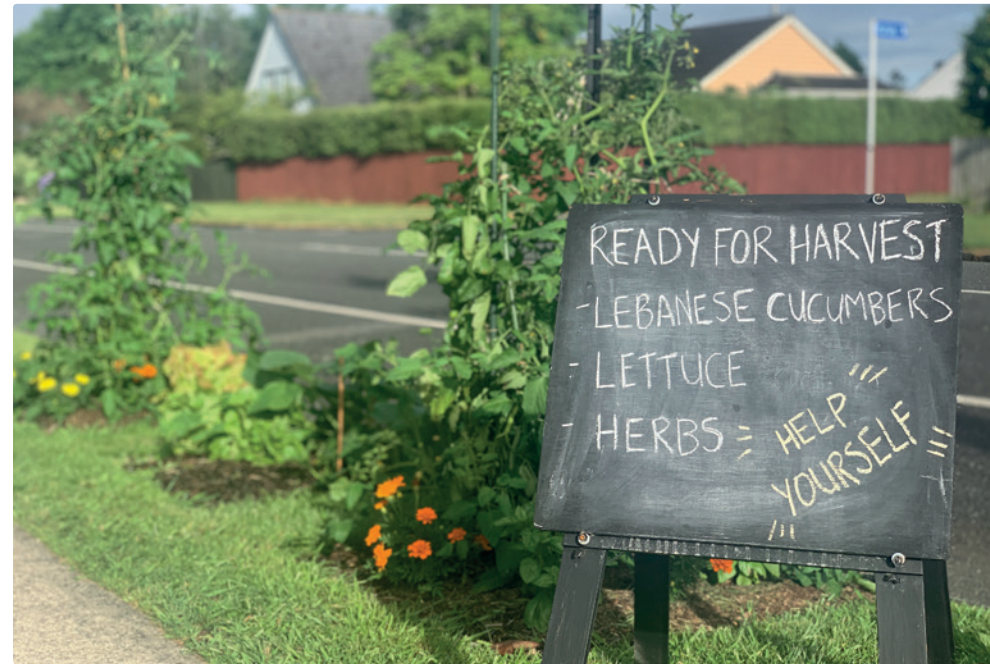 READY FOR HARVEST
- LEBANESE CUCUMBERS
- LETTUCE
- HERBS
HELP
YOURSELF